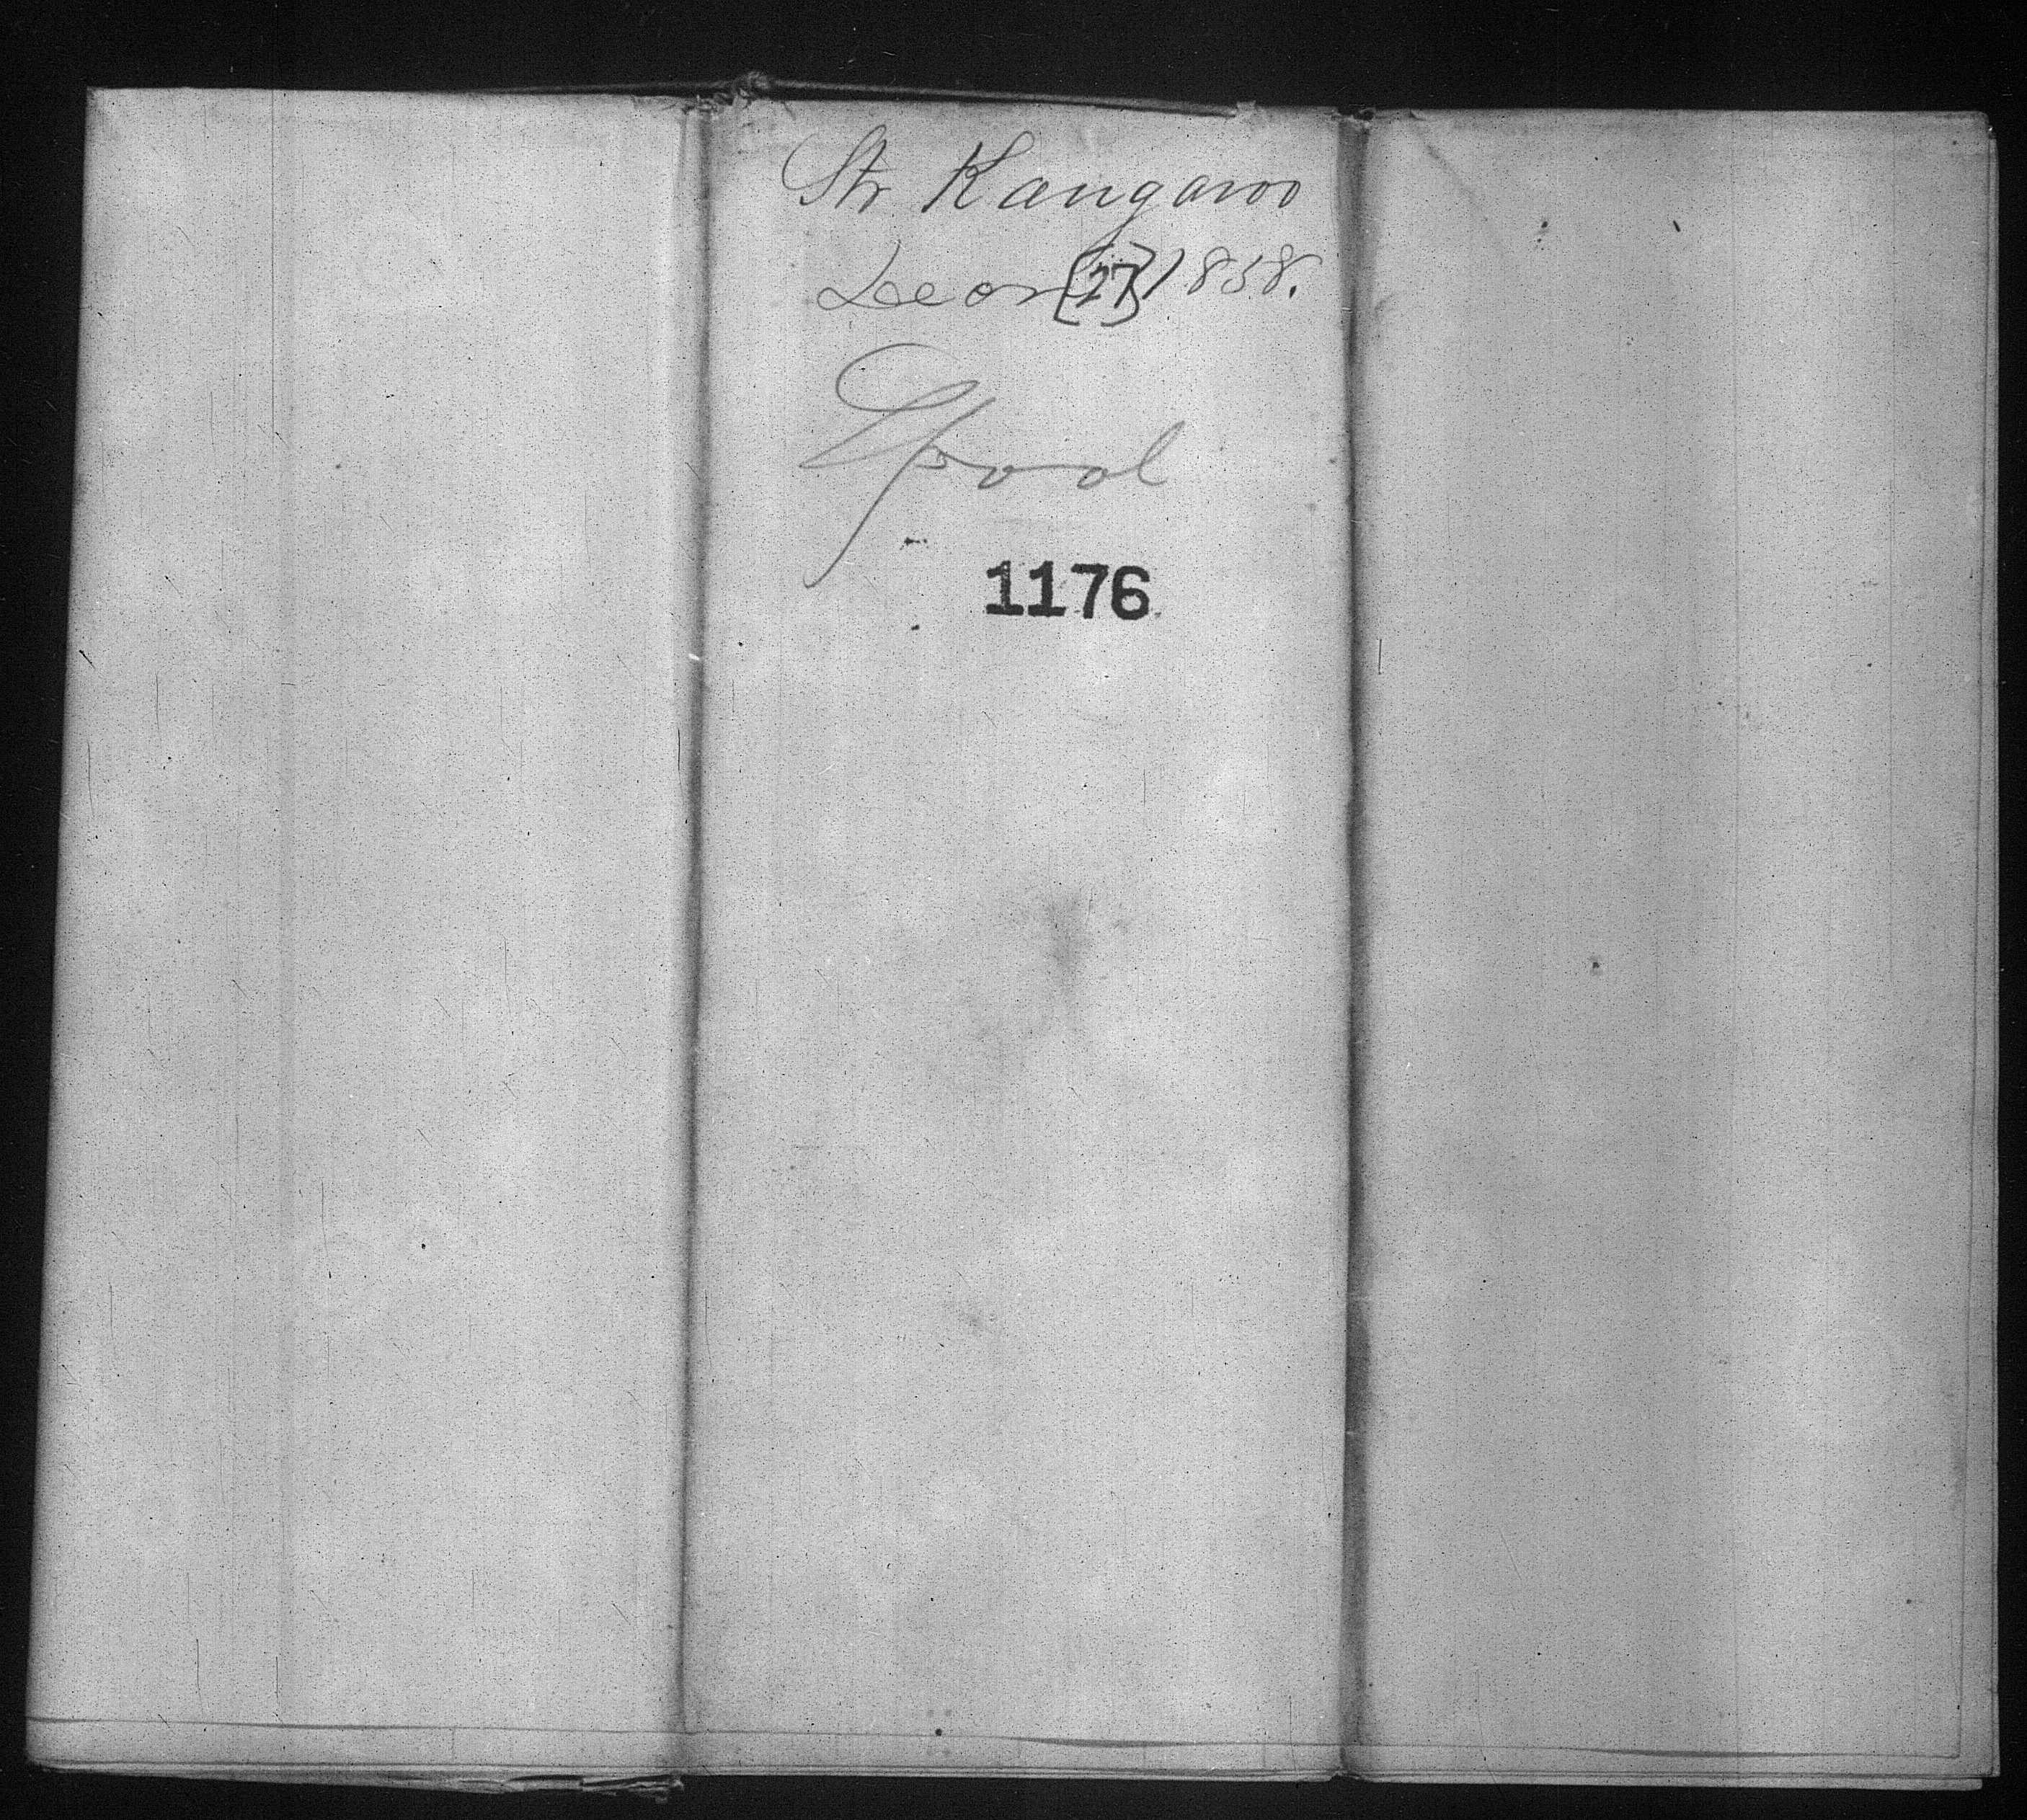 Str Kangaroo
Decr [27] 1858.
Lpool
1176